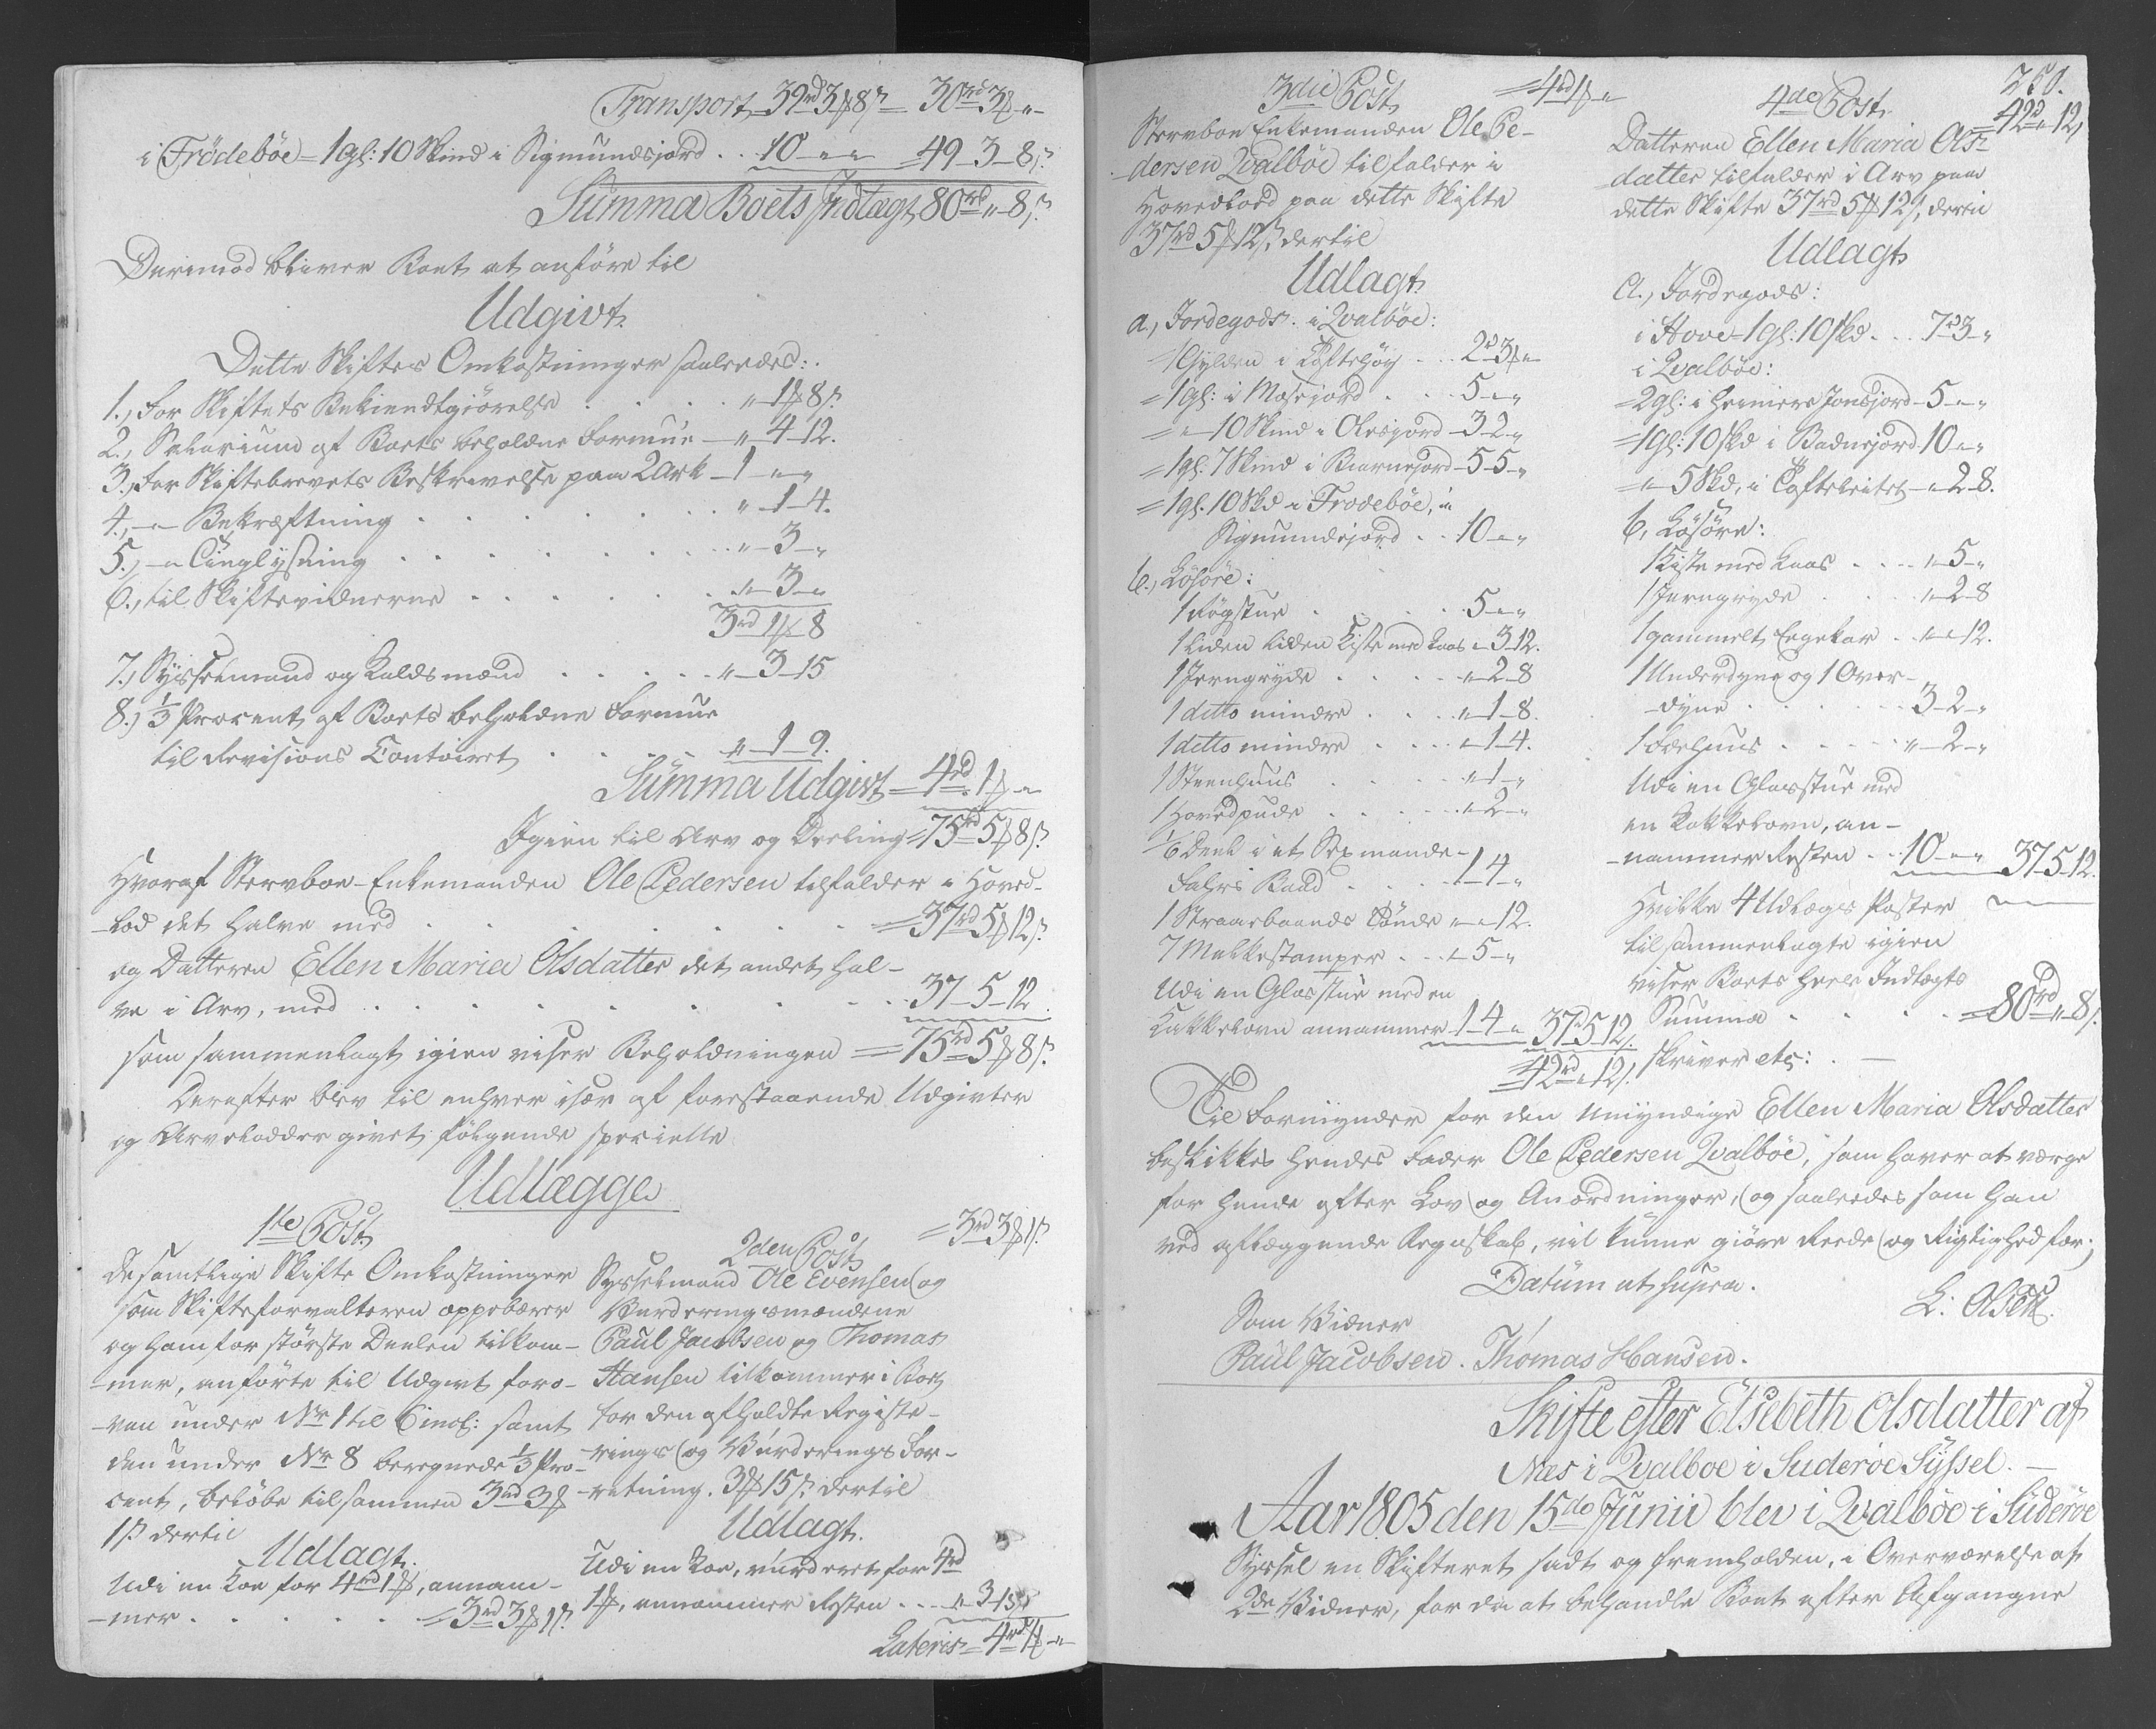 Transport 39rd 3 ß 8 s 30rd 3 ß "
i Frödebóe = 1 gl: 10 Skind i Sigmundsjord . . 10 - " - " 49 - 3 - 8 s.
Summa Boets Indtægt 80rd " - 8 s.
Derimod bliver Boet at anføre til
Udgivt.
Dette Skiftes Omkostninger saaledes:
1., For Skiftets Bekiendtgiørelse . . . . " 1 ß 8 s.
2., Salarium af Boets beholdne Formue - " - 4 - 12.
3., For Skiftebrevets Beskrivelse paa 2 Ark - 1 - " - "
4., - " - Bekræftning . . . . . . . " - 1 - 4.
5., - " Tinglysning . . . . . . . " - 3 - "
6., til Skiftevidnerne . . . . . . " - 3 - "
3rd 1 ß 8
7., Sysselmand og Kaldsmænd . . . . . " - 3 - 15
8., 1/3 Procent af Boets beholdne Formue
til Revisions Contoiret . . . . " - 1 - 9.
Summa Udgivt = 4rd 1 ß "
Igien til Arv og Deeling = 75rd 5 ß 8 s.
Hvoraf Stervboe-Enkemanden Ole Pedersen tilfalder i Hoved-
-lod det halve med . . . . . . = 37rd 5 ß 12 s.
og Datteren Ellen Maria Olsdatter det andet hal-
ve i Arv, med . . . . . . . . 37 - 5 - 12.
som sammenlagt igien viser Beholdningen = 75rd 5 ß 8 s.
Derefter blev til enhver især af forestaaende Udgivter
og Arvelodder givet følgende specielle
Udlægge
1te Post.
De samtlige Skifte Omkostninger
som Skifteforvalteren oppebærer
og ham for største Deelen tilkom-
-mer, anførte til Udgivt foro-
-ven under No 1 til 6 incl: samt
den under No 8 beregnede 1/3 Pro-
cent, beløbe tilsammen 3rd 3 ß
1 s. dertil
Udlagt.
Udi en Koe for 4rd 1 ß, annam-
-mer . . . . . . = 3rd 3 ß 1 s.
2den Post = 3rd 3 ß 1 s.
Sysselmand Ole Evensen og
Vurderingsmændene
Paul Jacobsen og Thomas
Hansen tilkommer i Boet
for den afholdte Registe-
-rings og Vurderings For-
-retning. 3 ß 15 s. dertil
Udlagt.
Udi en Koe, vurderet for 4rd
1 ß, annammer Resten . . . " - 3 - 15 s.
Lateris = 4rd 1 ß "
250.
3die Post = 4rd 1 ß "
Stervboe Enkemanden Ole Pe-
dersen Qvalbóe tilfalder i
Hovedlod paa dette Skifte
37rd 5 ß 12 s. dertil
Udlagt
a., Jordegods: i Qvalbóe:
1 Gylden i Toftehøy . . . 2rd 3 ß "
= 1 gl: i Mosejord . . . 5 - " - "
= " - 10 Skind i Olesjord - 3 - 2 - "
= 1 gl. 7 Skind i Biarnejord - 5 - 5 - "
= 1 gl. 10 Skd i Frodebóe, i
Sigmundsjord . . 10 - " - "
b., Løsøre:
1 Røgstue . . . . . 5 - " - "
1 liden liden Kiste med Laas " - 3 - 12.
1 Jerngryde . . . . " - 2 - 8
1 ditto mindre . . . " - 1 - 8.
1 ditto mindre . . . " - 1 - 4.
1 Steenhuus . . . . " - 1 - "
1 Hovedpude . . . . " - 2 - "
1/6 Deel i et Sexmands-
Fahrs Baad . . . . 1 - 4 - "
1 Straaebaands Tønde " - " - 12.
7 Melkestamper . . . " - 5 - "
Udi en Glasstue med en
Kakkelovn annammer 1 - 4 - " 37 - 5 - 12 s.
= 42rd " 12 s.
4de Post. = 42rd " 12 s.
Datteren Ellen Maria Ols-
datter tilfalder i Arv paa
dette Skifte 37rd 5 ß 12 s, deri
Udlagt
a., Jordegods:
i Hove = 1 gl: 10 skd . . . 7rd 3 - "
i Qvalbóe:
= 2 gl: i Heimere Jonsjord - 5 - " - "
= 1 gl: 10 skd i Badnejord 10 - " - "
= " - 5 Skd, i Tofteleitet - " 2 - 8.
b, Løsøre:
1 Kiste med Laas . . . . " - 5 - "
1 Jerngryde . . . . " - 2 - 8
1 gammelt Eegekar . . " - " - 12.
1 Underdyne og 1 Over-
-dyne . . . . . . . 3 - 2 - "
1 Faehuus . . . . . " - 2 - "
Udi en Glasstue med
en Kakkelovn, an-
-nammer Resten . . 10 - " - " 37 - 5 - 12.
Hvilke 4 Udlægs Poster
tilsammenlagte igien
viser Boets heele Indtægts
Summa . . . . . = 80rd " - 8 s.
skriver etc:. —
Til Formynder for den umyndige Ellen Maria Olsdatter
beskikkes hendes Fader Ole Pedersen Qvalbóe, som haver at værge
for hende efter Lov og Anordninger, og saaledes som han
ved aflæggende Regnskab, vil kunne giøre Reede og Rigtighed for.
Datum ut supra.
Som Vidner
Paul Jacobsen. Thomas Hansen.
Skifte efter Elsebeth Olsdatter af
Næs i Qvalboe i Suderöe Syssel. —
Aar 1805 den 15de Junii blev i Qvalbóe i Suderöe
Syssel en Skifteret sadt og fremholden, i Overværelse af
2de Vidner, for da at behandle Boet efter Afgangne